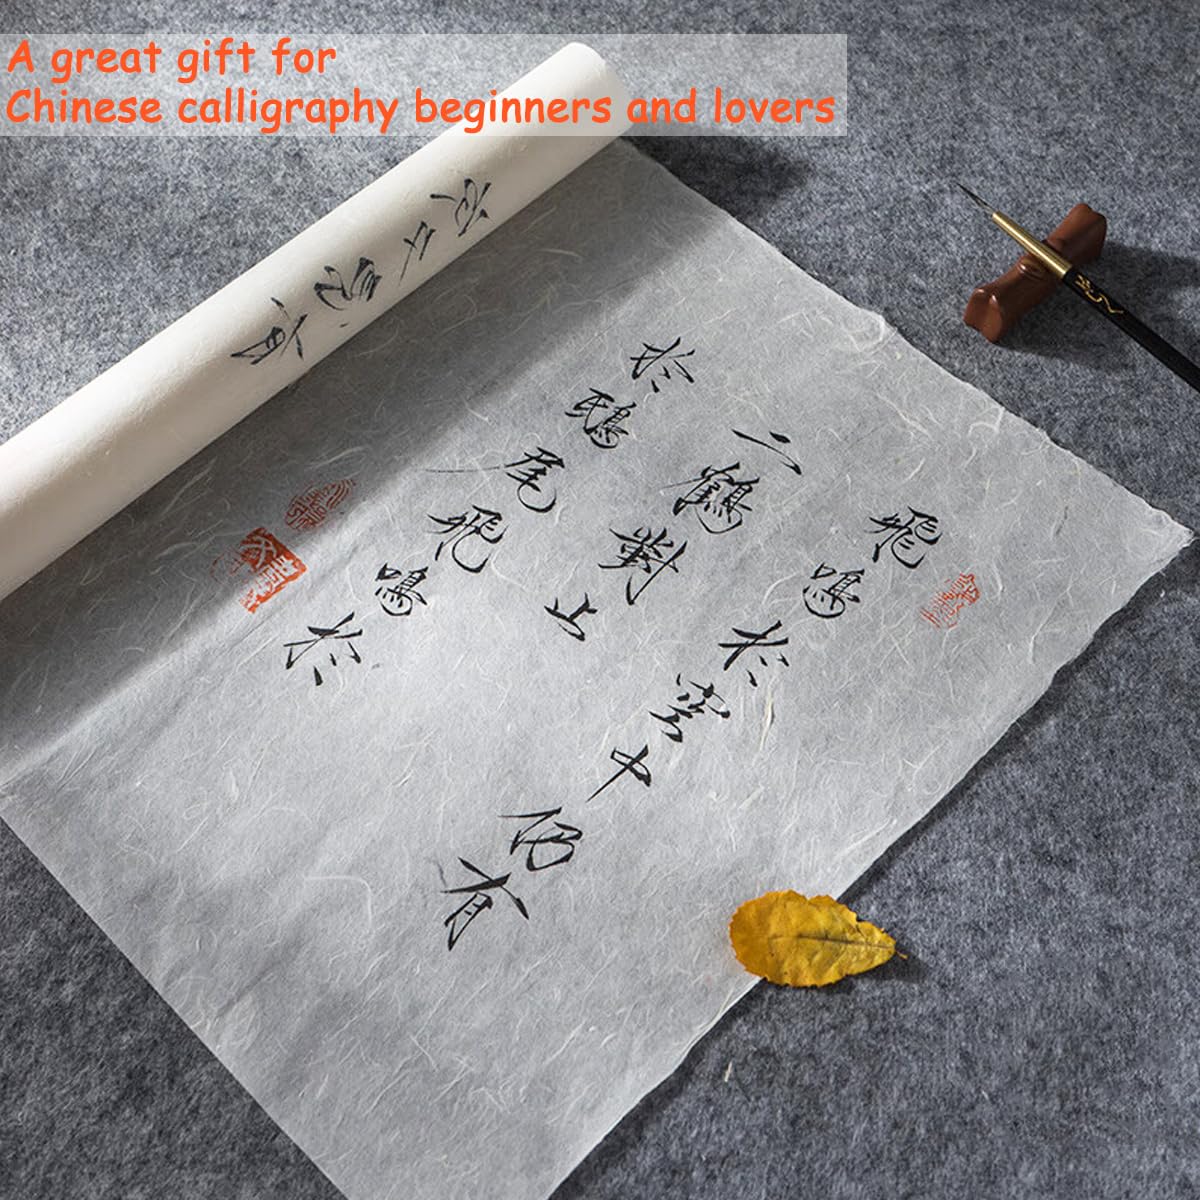 A great gift for
Chinese calligraphy beginners and lovers
飛鳴於空中仍有
二鶴對止
於鴟尾飛鳴於